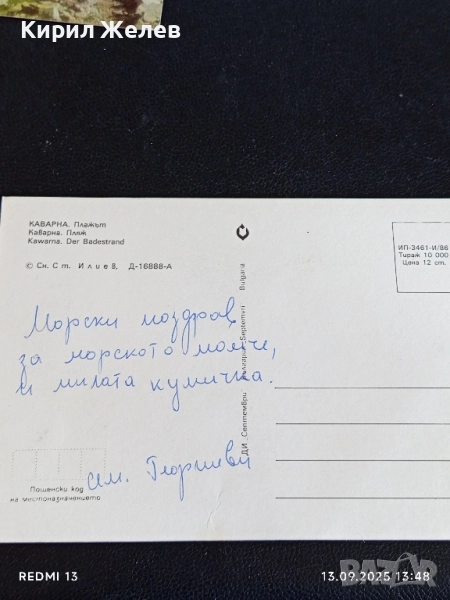 Кирил Желев
КАВАРНА. Плажът
Каварна. Пляж
Kawarna. Der Badestrand
© Сн. Ст. Илиев, Д-16888-А
ИП-3461-И/86
Тираж 10 000
Цена 12 ст.
Морски поздрав
за морското момче,
и милата кумичка.
сем. Георгиеви
Пощенски код
на местоназначението
ДИ Септември България Septemvri Bulgaria
REDMI 13
13.09.2025 13:48
BAZAR